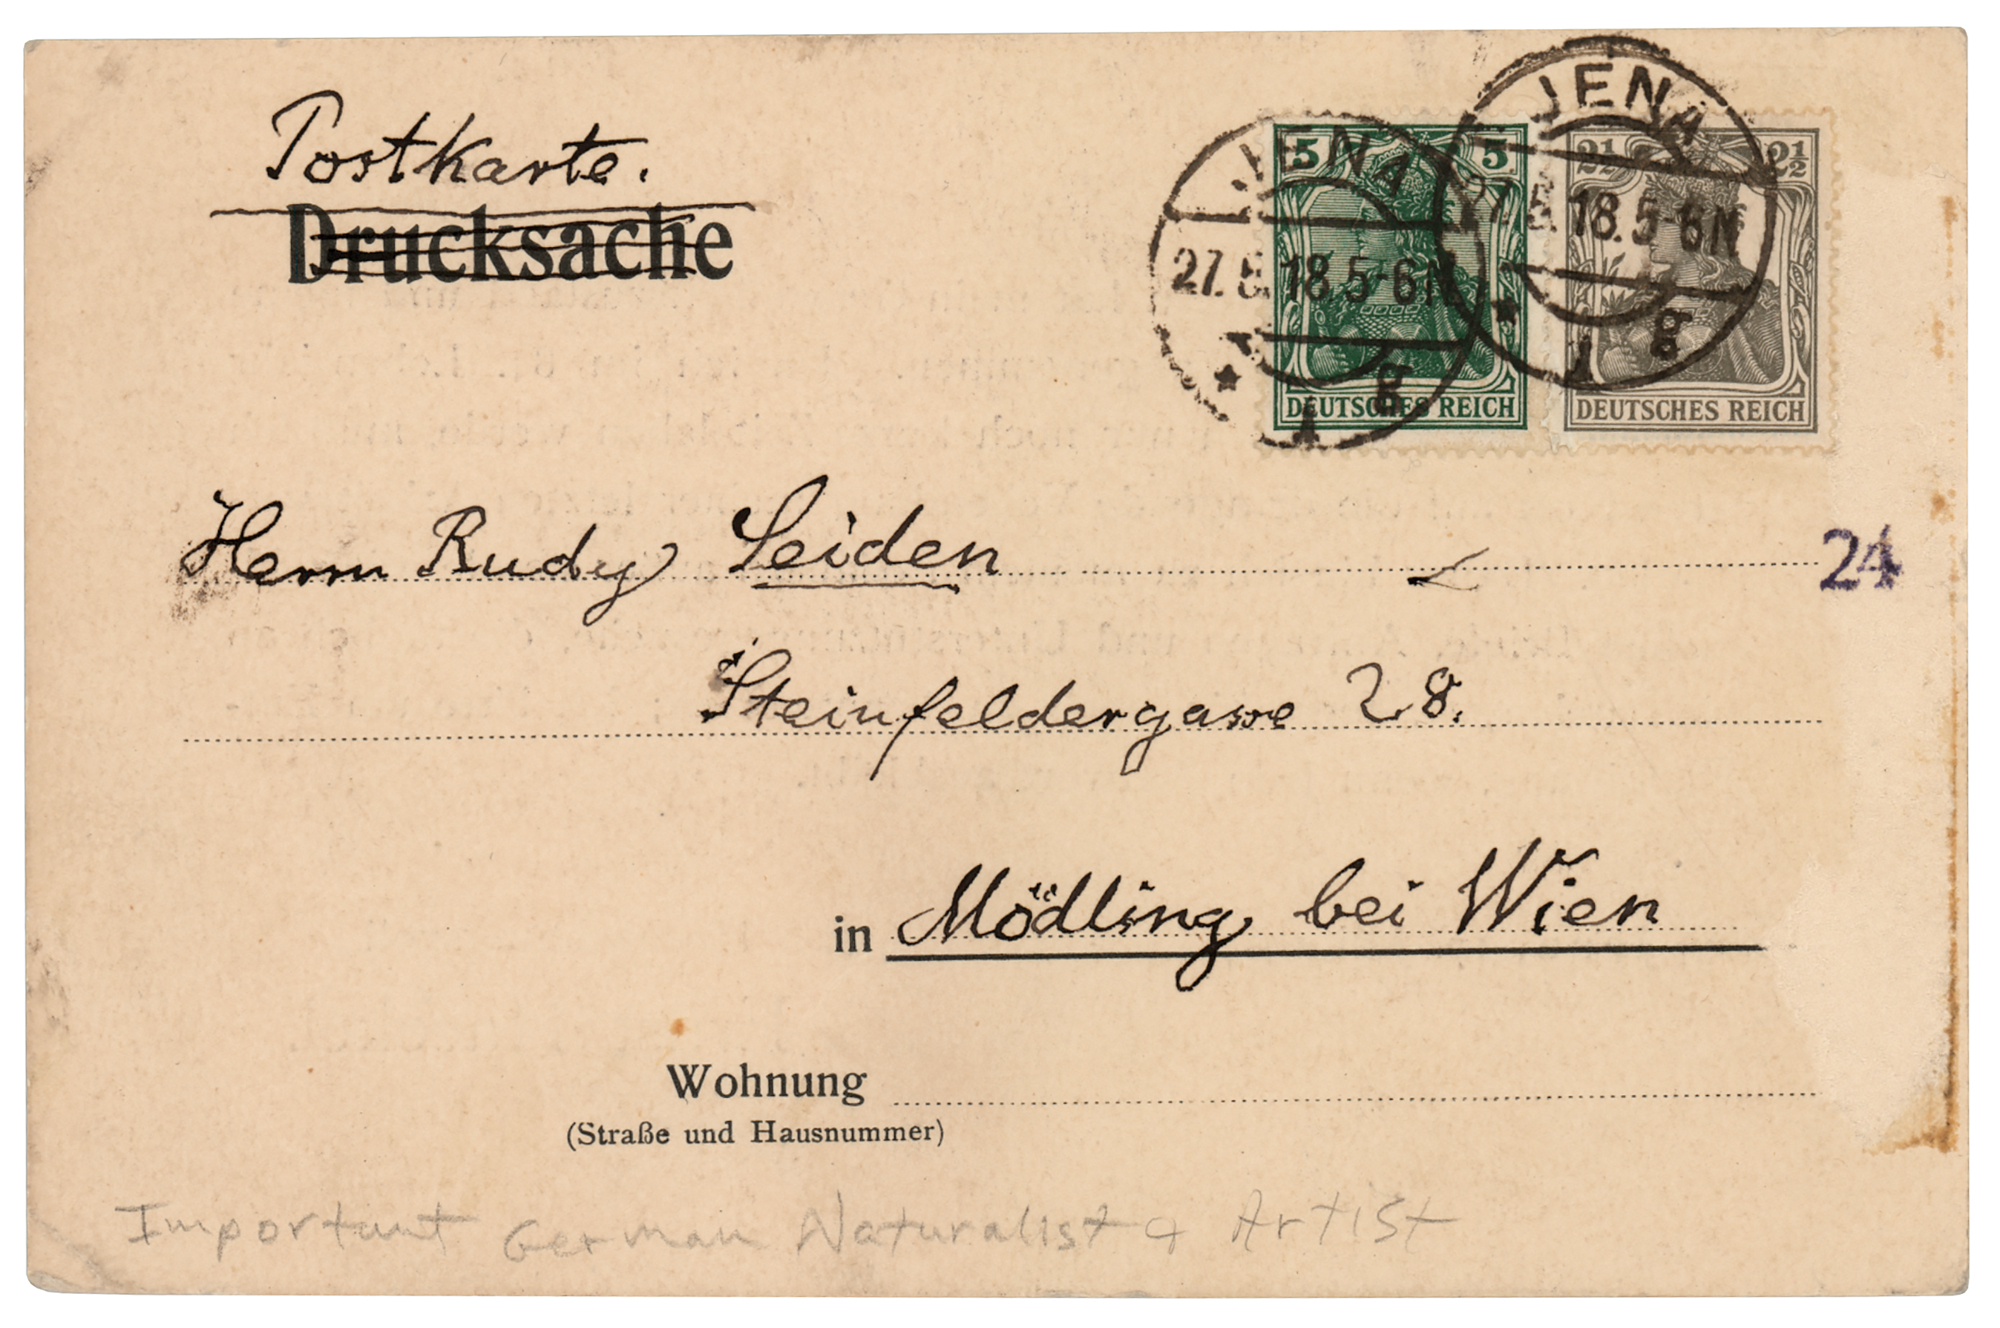 Postkarte.
Drucksache
5 5
2½ 2½
JENA
27.5.18.5-6N
* 1 g
JENA
27.5.18.5-6N
* 1 g
DEUTSCHES REICH
DEUTSCHES REICH
Herrn Rudy Seiden
24
Steinfeldergasse 28.
in Mödling bei Wien
Wohnung
(Straße und Hausnummer)
Important German Naturalist & Artist